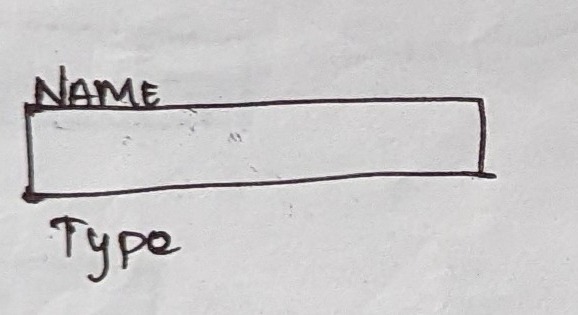 NAME
Type